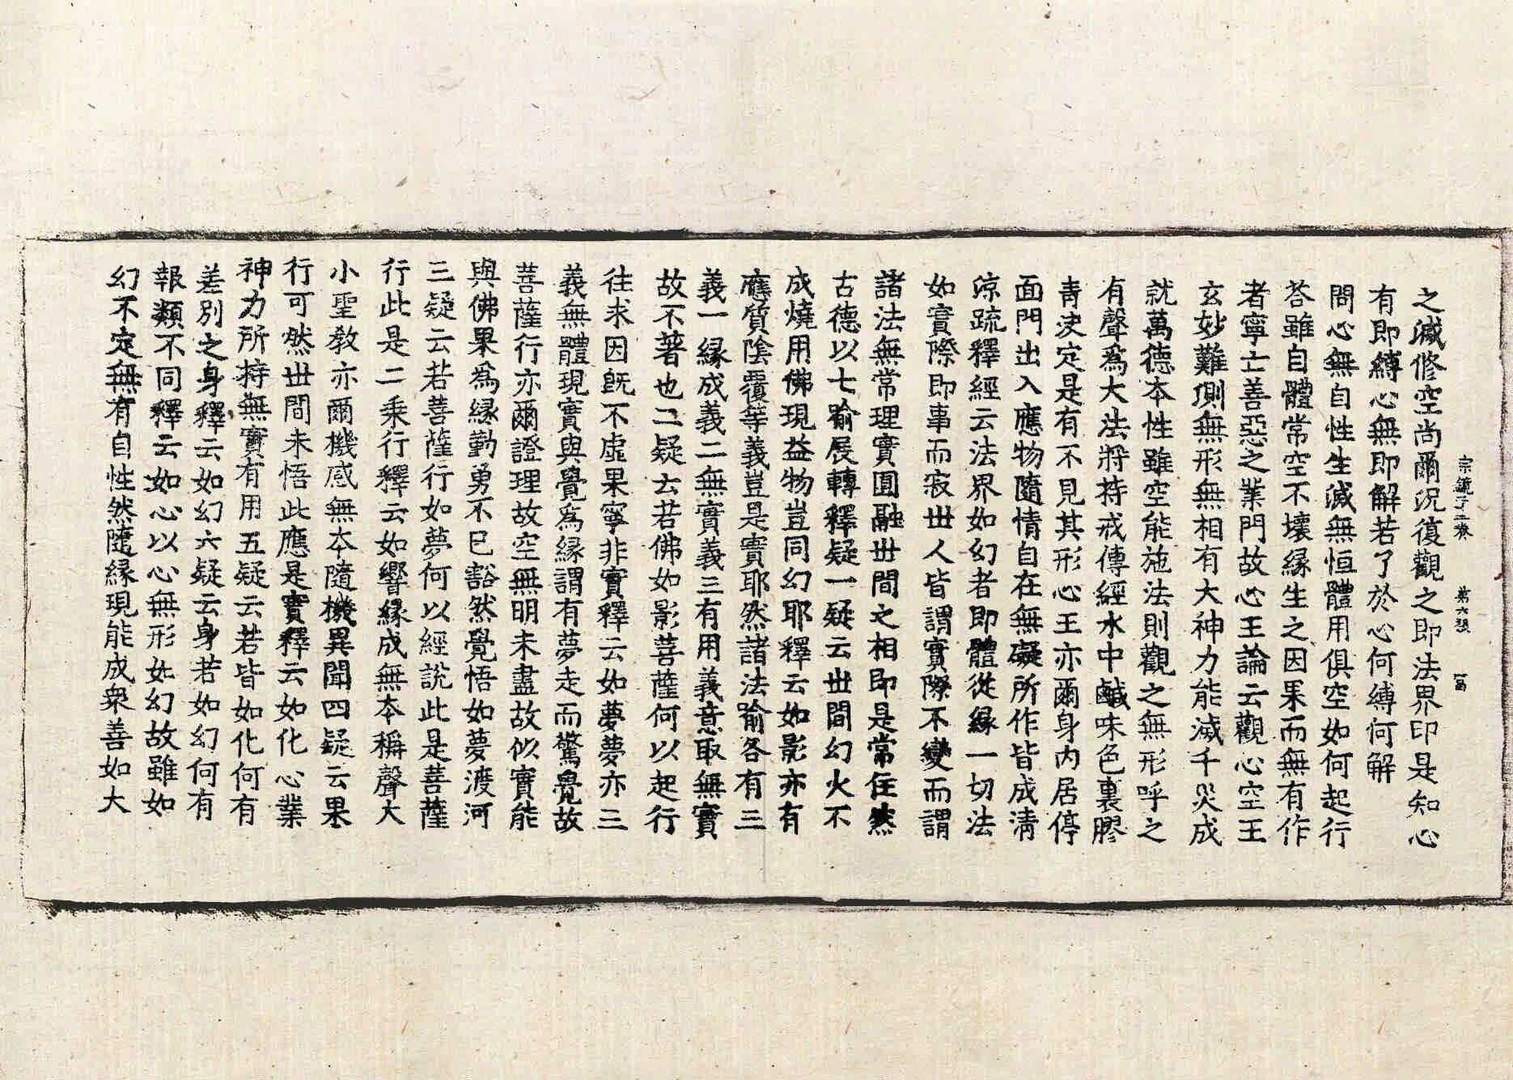 宗鏡 二卷 第六張 富
之滅修空尚爾況復觀之即法界印是知心
有即縛心無即解若了於心何縛何解
問心無自性生滅無恒體用俱空如何起行
荅雖自體常空不壞緣生之因果而無有作
者寧亡善惡之業門故心王論云觀心空王
玄妙難測無形無相有大神力能滅千災成
就萬德本性雖空能施法則觀之無形呼之
有聲爲大法將持戒傳經水中鹹味色裏膠
青決定是有不見其形心王亦爾身內居停
面門出入應物隨情自在無礙所作皆成清
涼疏釋經云法界如幻者即體從緣一切法
如實際即事而寂世人皆謂實際不變而謂
諸法無常理實圓融世間之相即是常住然
古德以七喻展轉釋疑一疑云世間幻火不
成燒用佛現益物豈同幻耶釋云如影亦有
應質陰覆等義豈是實耶然諸法喻各有三
義一緣成義二無實義三有用義意取無實
故不著也二疑云若佛如影菩薩何以起行
往求因既不虛果寧非實釋云如夢夢亦三
義無體現實與覺爲緣謂有夢走而驚覺故
菩薩行亦爾證理故空無明未盡故似實能
與佛果爲緣勤勇不已豁然覺悟如夢渡河
三疑云若菩薩行如夢何以經說此是菩薩
行此是二乘行釋云如響緣成無本稱聲大
小聖教亦爾機感無本隨機異聞四疑云果
行可然世間未悟此應是實釋云如化心業
神力所持無實有用五疑云若皆如化何有
差別之身釋云如幻六疑云身若如幻何有
報類不同釋云如心以心無形如幻故雖如
幻不定無有自性然隨緣現能成衆善如大